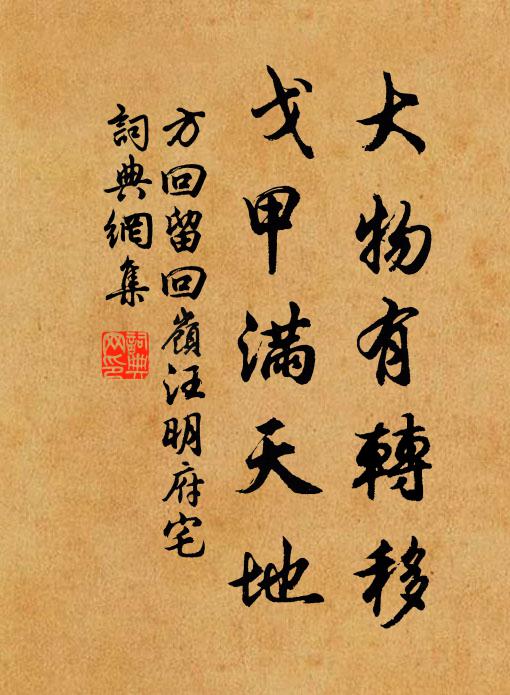 大物有轉移
戈甲滿天地
方回留回嶺汪明府宅
詞典網集
詞典
网印